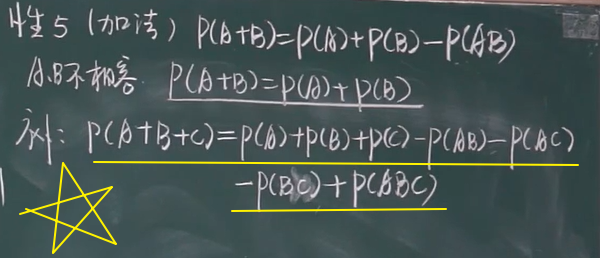 性5(加法) P(A+B)=P(A)+P(B)-P(AB)
A.B不相容. P(A+B)=P(A)+P(B)
对: P(A+B+C)=P(A)+P(B)+P(C)-P(AB)-P(AC)
-P(BC)+P(ABC)